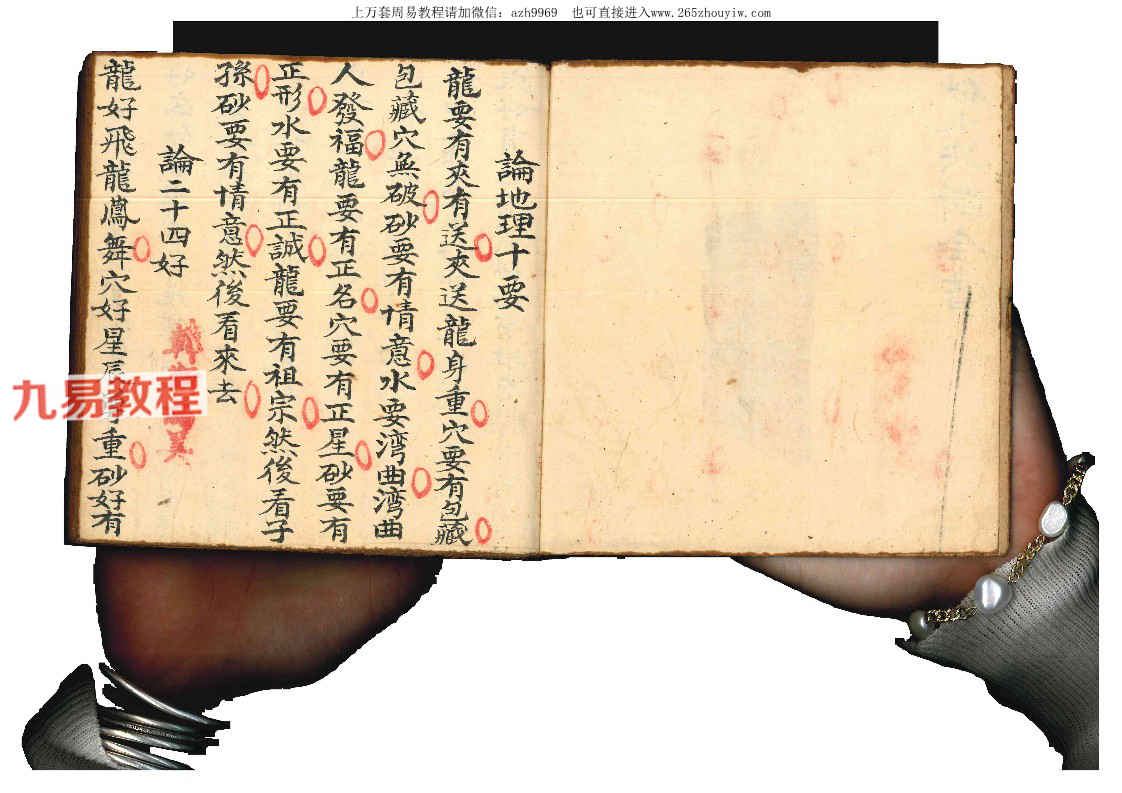 上万套周易教程请加微信：azh9969 也可直接进入www.265zhouyiw.com
論地理十要
龍要有夾有送夾送龍身重穴要有包藏
包藏穴無破砂要有情意水要湾曲湾曲
人發福龍要有正名穴要有正星砂要有
正形水要有正誠龍要有祖宗然後看子
孫砂要有情意然後看來去
論二十四好
龍好飛龍鳳舞穴好星辰重砂好有
九易教程